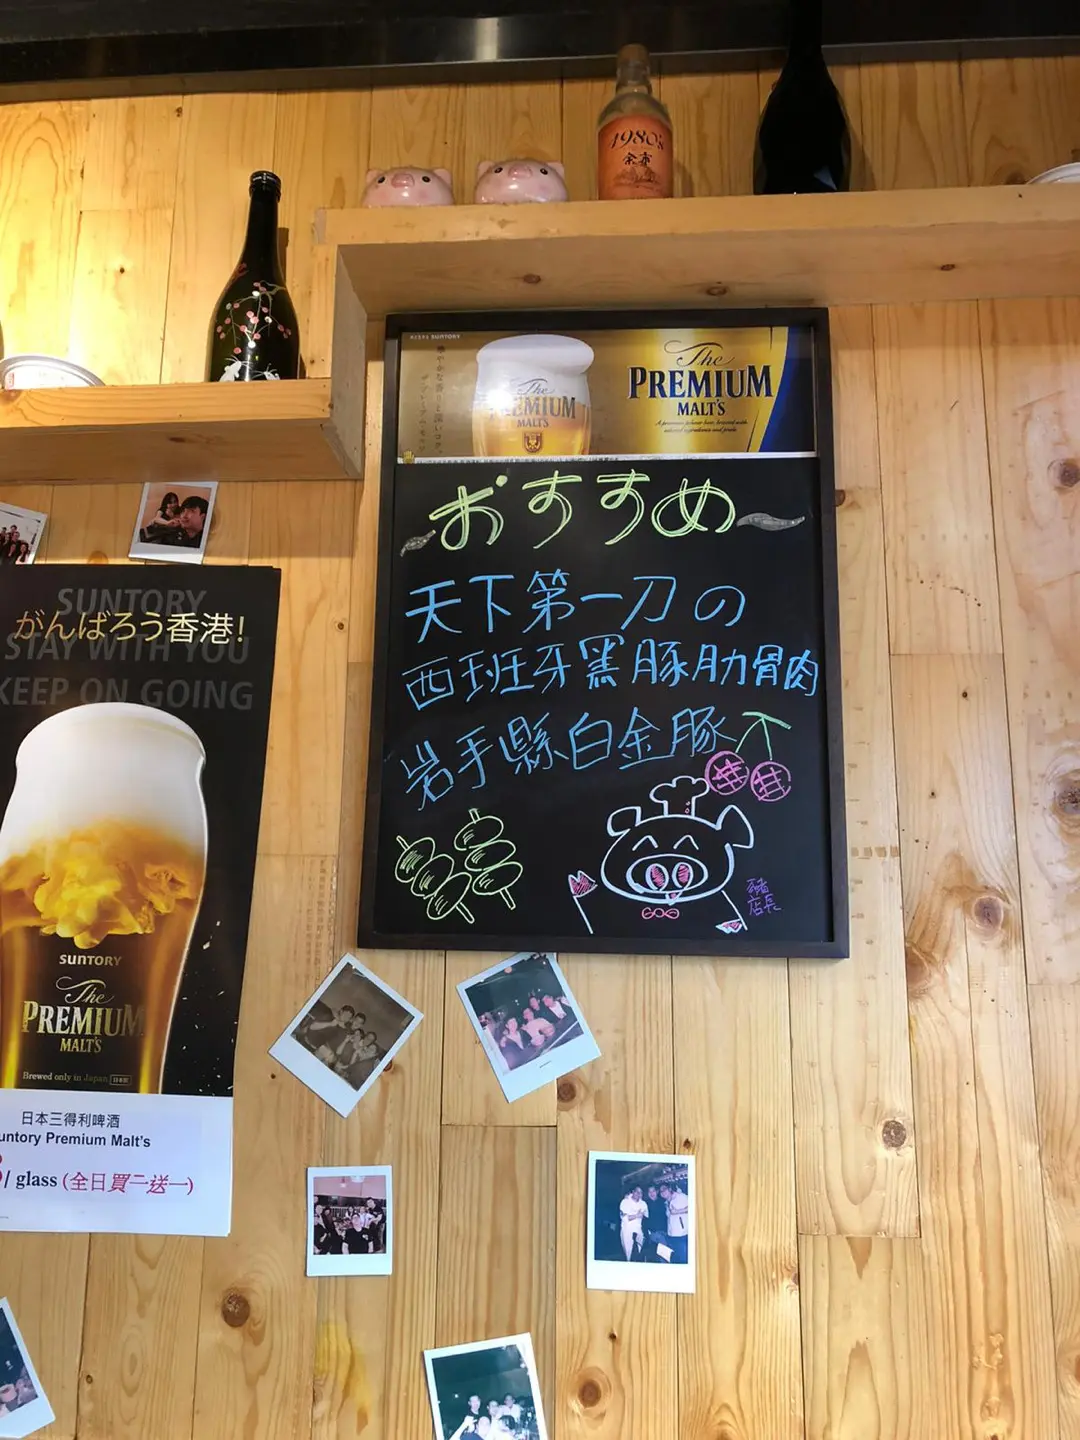 1980's
余市
SUNTORY
華やかな香りと深いコク。
The
PREMIUM
MALT'S
The
PREMIUM
MALT'S
おすすめ
天下第一刀の
西班牙黑豚肋骨肉
岩手縣白金豚
豬
店長
SUNTORY
がんばろう香港!
STAY WITH YOU
KEEP ON GOING
SUNTORY
The
PREMIUM
MALT'S
Brewed only in Japan
日本三得利啤酒
untory Premium Malt's
/ glass (全日買二送一)